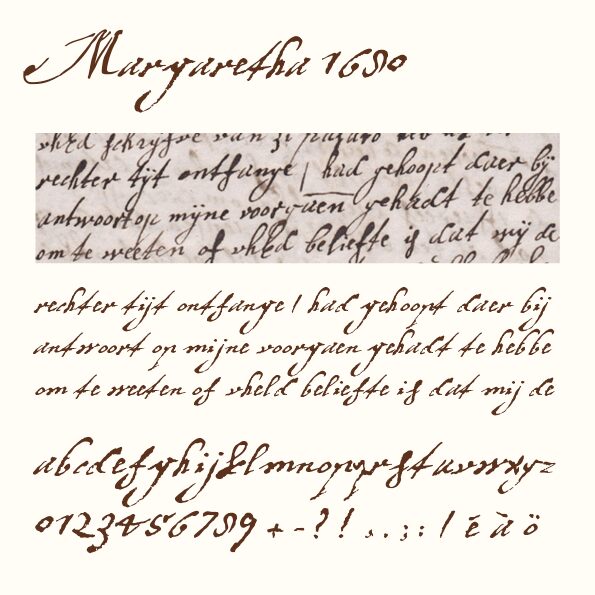 Margaretha 1680
vhld schryfve van
rechter tijt ontfange / had gehoopt daer bij
antwoort op mijne voorgaen gehadt te hebbe
om te weeten of vhld beliefte is dat mij de
rechter tijt ontfange / had gehoopt daer bij
antwoort op mijne voorgaen gehadt te hebbe
om te weeten of vheld beliefte is dat mij de
abcdefghijklmnopqrstuvwxyz
0123456789 + - ? ! , . ; : / é à ö